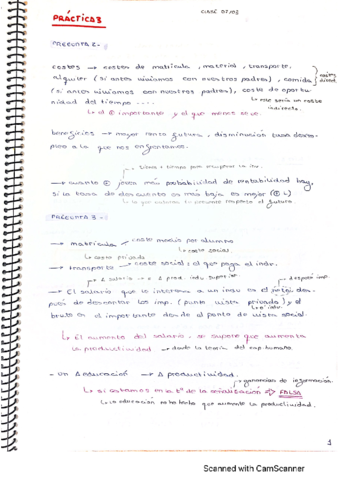 CLASE 02/03
PRÁCTICA 3
PREGUNTA 2.-
costes → costes de matrícula, material, transporte,
alquiler (si antes vivíamos con nuestros padres), comida
(si antes vivíamos con nuestros padres), coste de oportu
nidad del tiempo ....
↳ este sería un coste
indirecto.
↳ el ① importante y el que menos se ve.
beneficios → mayor renta futura, disminución tasa desem-
pleo a la que nos enfrentamos.
tienes + tiempo para recuperar la inv.
→ cuanto ⊕ joven más probabilidad de rentabilidad hay,
si la tasa de descuento es más baja es mejor
la que valoras tu presente respecto al futuro
PREGUNTA 3.-
→ matrícula
coste medio por alumno
↳ coste social
↳ coste privado
→ transporte → coste social: el que paga el indv.
Δ salario → Δ prod. indv superior
después imp.
→ El salario que le interesa a un indv es el des-
pués de descontar los imp. (punto vista privado) y el
bruto es el importante desde el punto de vista social.
↳ El aumento del salario, se supone que aumenta
la productividad → desde la teoría del cap. humano.
- un Δ educación → Δ productividad.
ganancias de información
↳ si estamos en la tª de la señalización ⇒ FALSA
↳ la educación no ha hecho que aumente la productividad.
1
Scanned with CamScanner